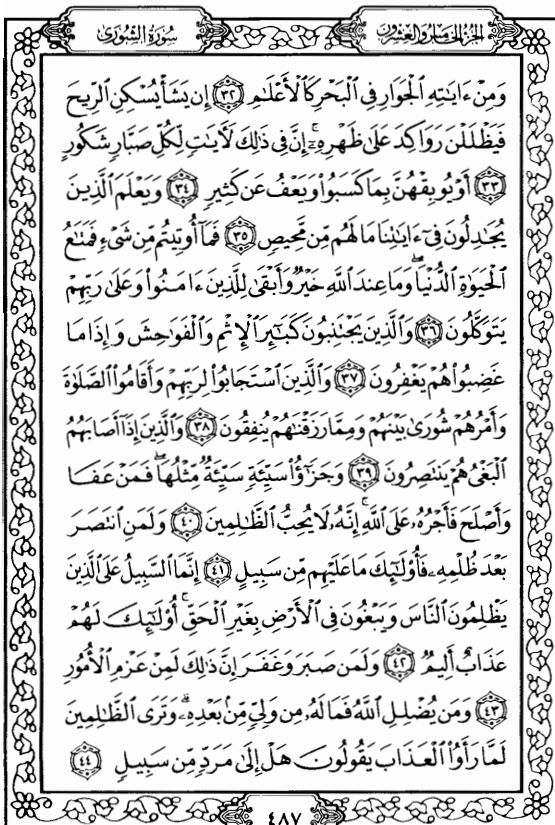 سُورَةُ الشُّورَىٰ الجُزْءُ الخَامِسُ وَالعِشْرُونَ
وَمِنْ ءَايَـٰتِهِ ٱلْجَوَارِ فِى ٱلْبَحْرِ كَٱلْأَعْلَـٰمِ ﴿٣٢﴾ إِن يَشَأْ يُسْكِنِ ٱلرِّيحَ
فَيَظْلَلْنَ رَوَاكِدَ عَلَىٰ ظَهْرِهِۦٓ ۚ إِنَّ فِى ذَٰلِكَ لَـَٔايَـٰتٍ لِّكُلِّ صَبَّارٍ شَكُورٍ
﴿٣٣﴾ أَوْ يُوبِقْهُنَّ بِمَا كَسَبُوا۟ وَيَعْفُ عَن كَثِيرٍ ﴿٣٤﴾ وَيَعْلَمَ ٱلَّذِينَ
يُجَـٰدِلُونَ فِىٓ ءَايَـٰتِنَا مَا لَهُم مِّن مَّحِيصٍ ﴿٣٥﴾ فَمَآ أُوتِيتُم مِّن شَىْءٍ فَمَتَـٰعُ
ٱلْحَيَوٰةِ ٱلدُّنْيَا ۖ وَمَا عِندَ ٱللَّهِ خَيْرٌ وَأَبْقَىٰ لِلَّذِينَ ءَامَنُوا۟ وَعَلَىٰ رَبِّهِمْ
يَتَوَكَّلُونَ ﴿٣٦﴾ وَٱلَّذِينَ يَجْتَنِبُونَ كَبَـٰٓئِرَ ٱلْإِثْمِ وَٱلْفَوَٰحِشَ وَإِذَا مَا
غَضِبُوا۟ هُمْ يَغْفِرُونَ ﴿٣٧﴾ وَٱلَّذِينَ ٱسْتَجَابُوا۟ لِرَبِّهِمْ وَأَقَامُوا۟ ٱلصَّلَوٰةَ
وَأَمْرُهُمْ شُورَىٰ بَيْنَهُمْ وَمِمَّا رَزَقْنَـٰهُمْ يُنفِقُونَ ﴿٣٨﴾ وَٱلَّذِينَ إِذَآ أَصَابَهُمُ
ٱلْبَغْىُ هُمْ يَنتَصِرُونَ ﴿٣٩﴾ وَجَزَٰٓؤُا۟ سَيِّئَةٍ سَيِّئَةٌ مِّثْلُهَا ۖ فَمَنْ عَفَا
وَأَصْلَحَ فَأَجْرُهُۥ عَلَى ٱللَّهِ ۚ إِنَّهُۥ لَا يُحِبُّ ٱلظَّـٰلِمِينَ ﴿٤٠﴾ وَلَمَنِ ٱنتَصَرَ
بَعْدَ ظُلْمِهِۦ فَأُو۟لَـٰٓئِكَ مَا عَلَيْهِم مِّن سَبِيلٍ ﴿٤١﴾ إِنَّمَا ٱلسَّبِيلُ عَلَى ٱلَّذِينَ
يَظْلِمُونَ ٱلنَّاسَ وَيَبْغُونَ فِى ٱلْأَرْضِ بِغَيْرِ ٱلْحَقِّ ۚ أُو۟لَـٰٓئِكَ لَهُمْ
عَذَابٌ أَلِيمٌ ﴿٤٢﴾ وَلَمَن صَبَرَ وَغَفَرَ إِنَّ ذَٰلِكَ لَمِنْ عَزْمِ ٱلْأُمُورِ
﴿٤٣﴾ وَمَن يُضْلِلِ ٱللَّهُ فَمَا لَهُۥ مِن وَلِىٍّ مِّنۢ بَعْدِهِۦ ۗ وَتَرَى ٱلظَّـٰلِمِينَ
لَمَّا رَأَوُا۟ ٱلْعَذَابَ يَقُولُونَ هَلْ إِلَىٰ مَرَدٍّ مِّن سَبِيلٍ ﴿٤٤﴾
٤٨٧